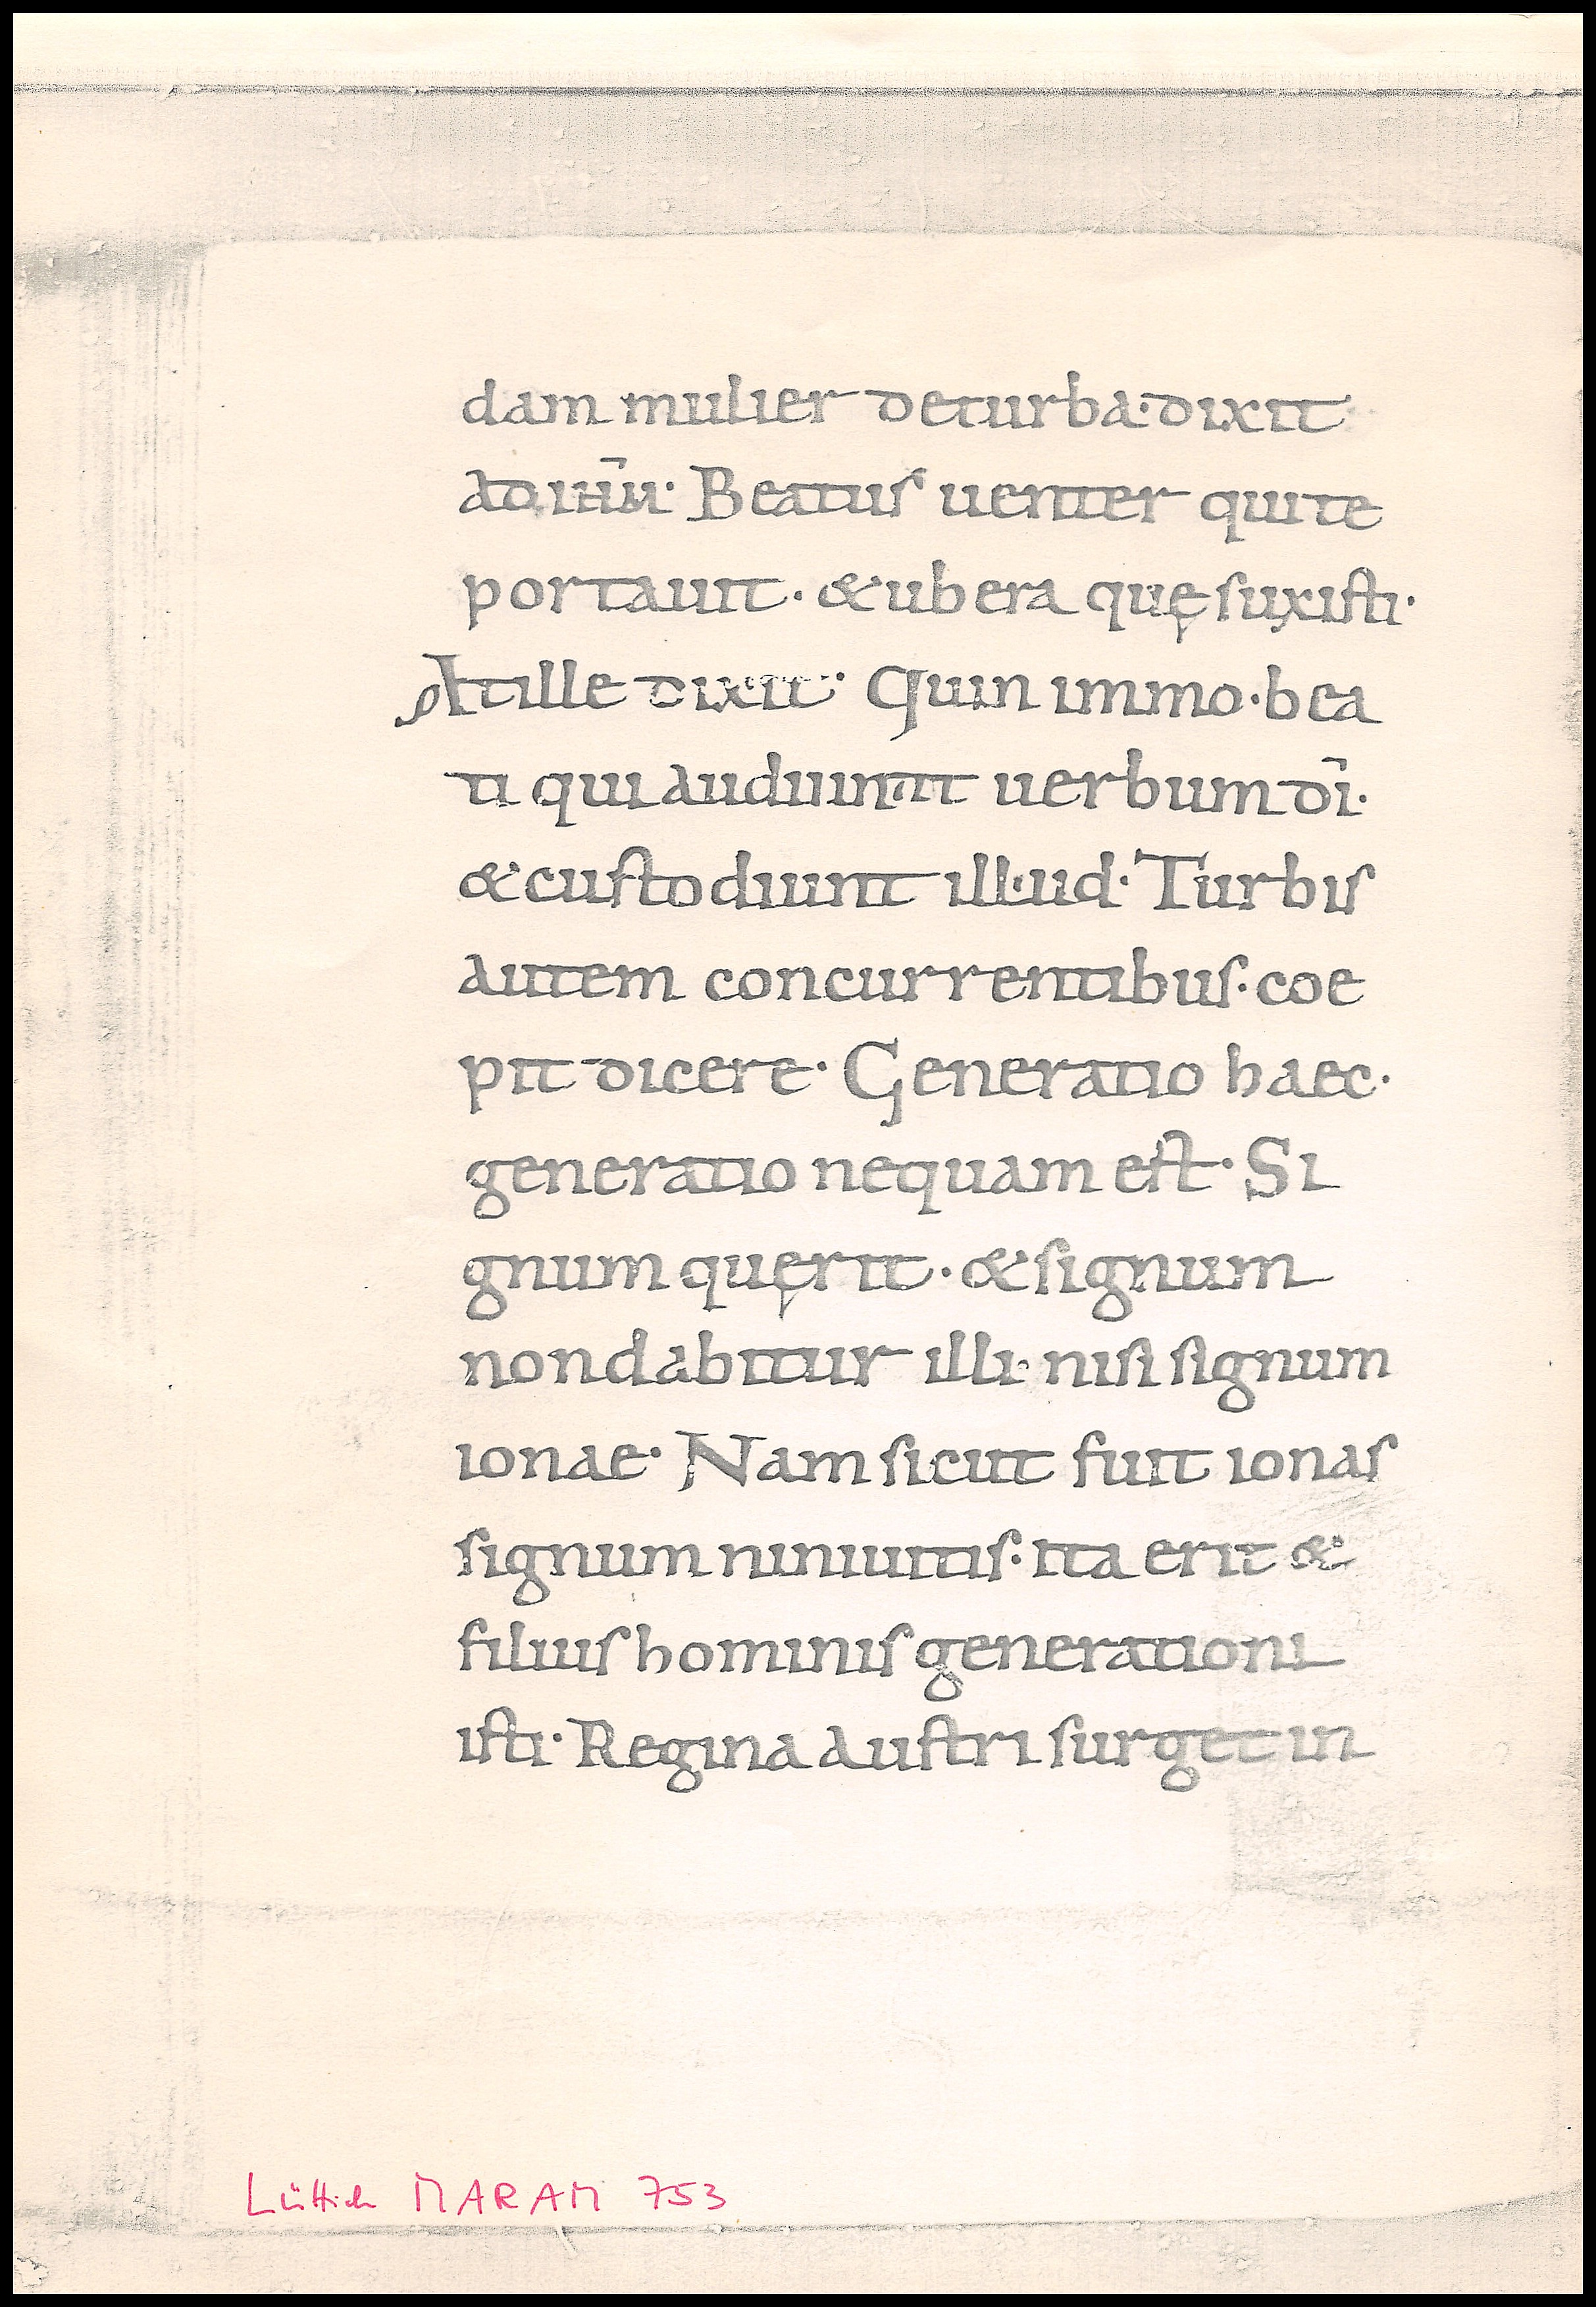 dam mulier deturba· dixit
ad ihm̄· Beatus uenter qui te
portauit· & ubera quę suxisti·
At ille dixit· Quin immo· bea
ti qui audiunt uerbum dī·
& custodiunt illud· Turbis
autem concurrentibus· coe
pit dicere· Generatio haec·
generatio nequam est· Si
gnum quęrit· & signum
non dabitur illi· nisi signum
ionae· Nam sicut fuit ionas
signum niniuitis· ita erit &
filius hominis generationi
isti· Regina austri surget in
Lüttich MARAM 753